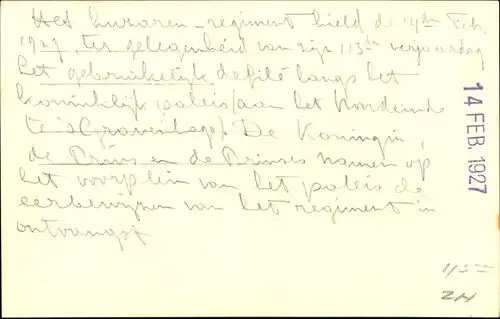 Het huzaren-regiment hield de 14den Febr.
1927, ter gelegenheid van zijn 113de verjaardag
het gebruikelijk defilé langs het
koninklijk paleis (aan het Noordeinde
te 's Gravenhage). De Koningin,
de Prins en de Prinses namen op
het voorplein van het paleis de
eerbewijzen van het regiment in
ontvangst
14 FEB. 1927
ZH